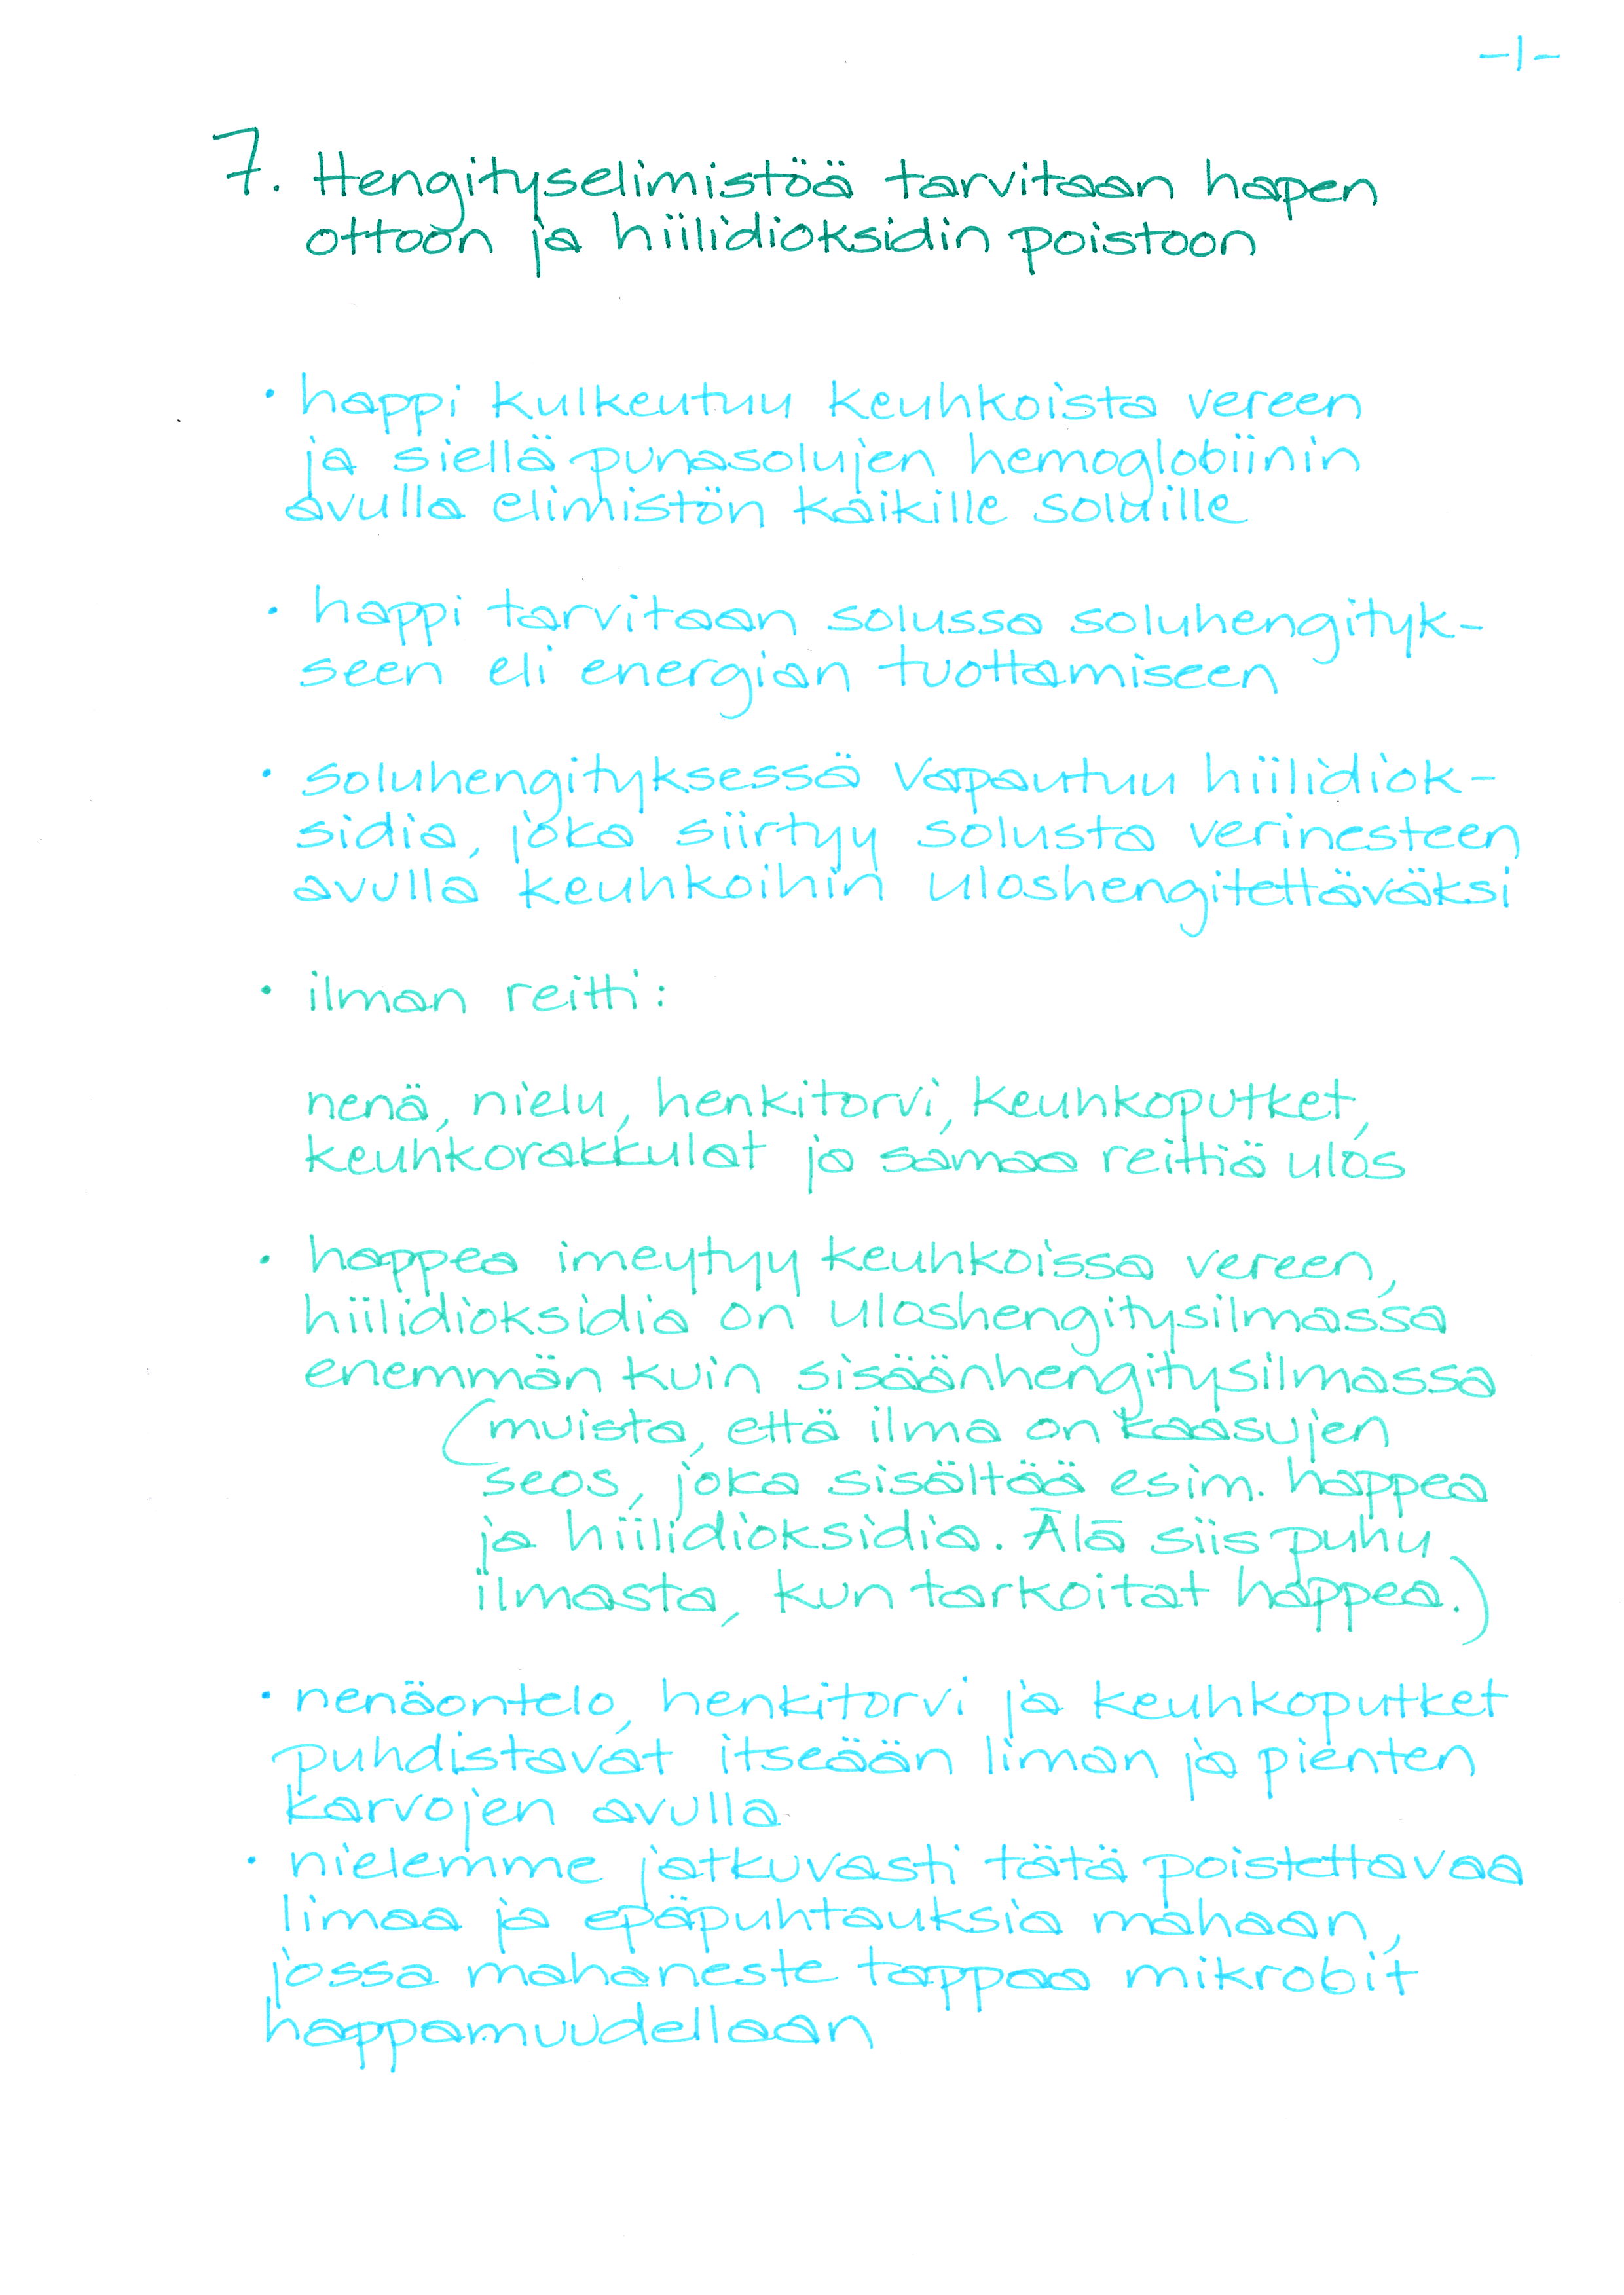 -1-
7. Hengityselimistöä tarvitaan hapen
ottoon ja hiilidioksidin poistoon
• happi kulkeutuu keuhkoista vereen
ja siellä punasolujen hemoglobiinin
avulla elimistön kaikille soluille
• happi tarvitaan solussa soluhengityk-
seen eli energian tuottamiseen
• soluhengityksessä vapautuu hiilidiok-
sidia, joka siirtyy solusta verinesteen
avulla keuhkoihin uloshengitettäväksi
• ilman reitti:
nenä, nielu, henkitorvi, keuhkoputket,
keuhkorakkulat ja samaa reittiä ulos
• happea imeytyy keuhkoissa vereen,
hiilidioksidia on uloshengitysilmassa
enemmän kuin sisäänhengitysilmassa
(muista, että ilma on kaasujen
seos, joka sisältää esim. happea
ja hiilidioksidia. Älä siis puhu
ilmasta, kun tarkoitat happea.)
• nenäontelo, henkitorvi ja keuhkoputket
puhdistavat itseään liman ja pienten
karvojen avulla
• nielemme jatkuvasti tätä poistettavaa
limaa ja epäpuhtauksia mahaan,
jossa mahaneste tappaa mikrobit
happamuudellaan